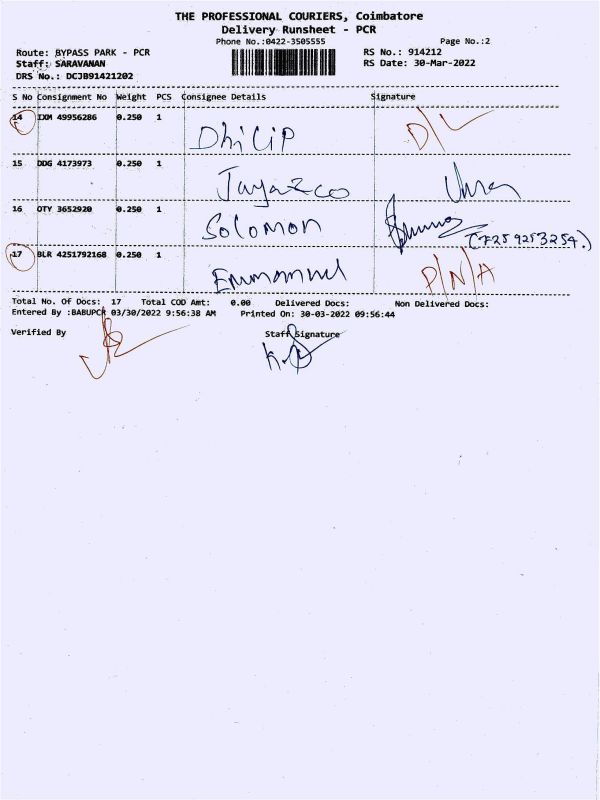 THE PROFESSIONAL COURIERS, Coimbatore
Delivery Runsheet - PCR
Phone No.:0422-3505555 Page No.:2
Route: BYPASS PARK - PCR RS No.: 914212
Staff: SARAVANAN RS Date: 30-Mar-2022
DRS No.: DCJB91421202
S No Consignment No Weight PCS Consignee Details Signature
14 IXM 49956286 0.250 1 Dhilip D/L
15 DDG 4173973 0.250 1
16 OTY 3652920 0.250 1 Solomon (7259253254.)
17 BLR 4251792168 0.250 1 Emmanuel P/N/A
Total No. Of Docs: 17 Total COD Amt: 0.00 Delivered Docs: Non Delivered Docs:
Entered By :BABUPCR 03/30/2022 9:56:38 AM Printed On: 30-03-2022 09:56:44
Verified By Staff Signature